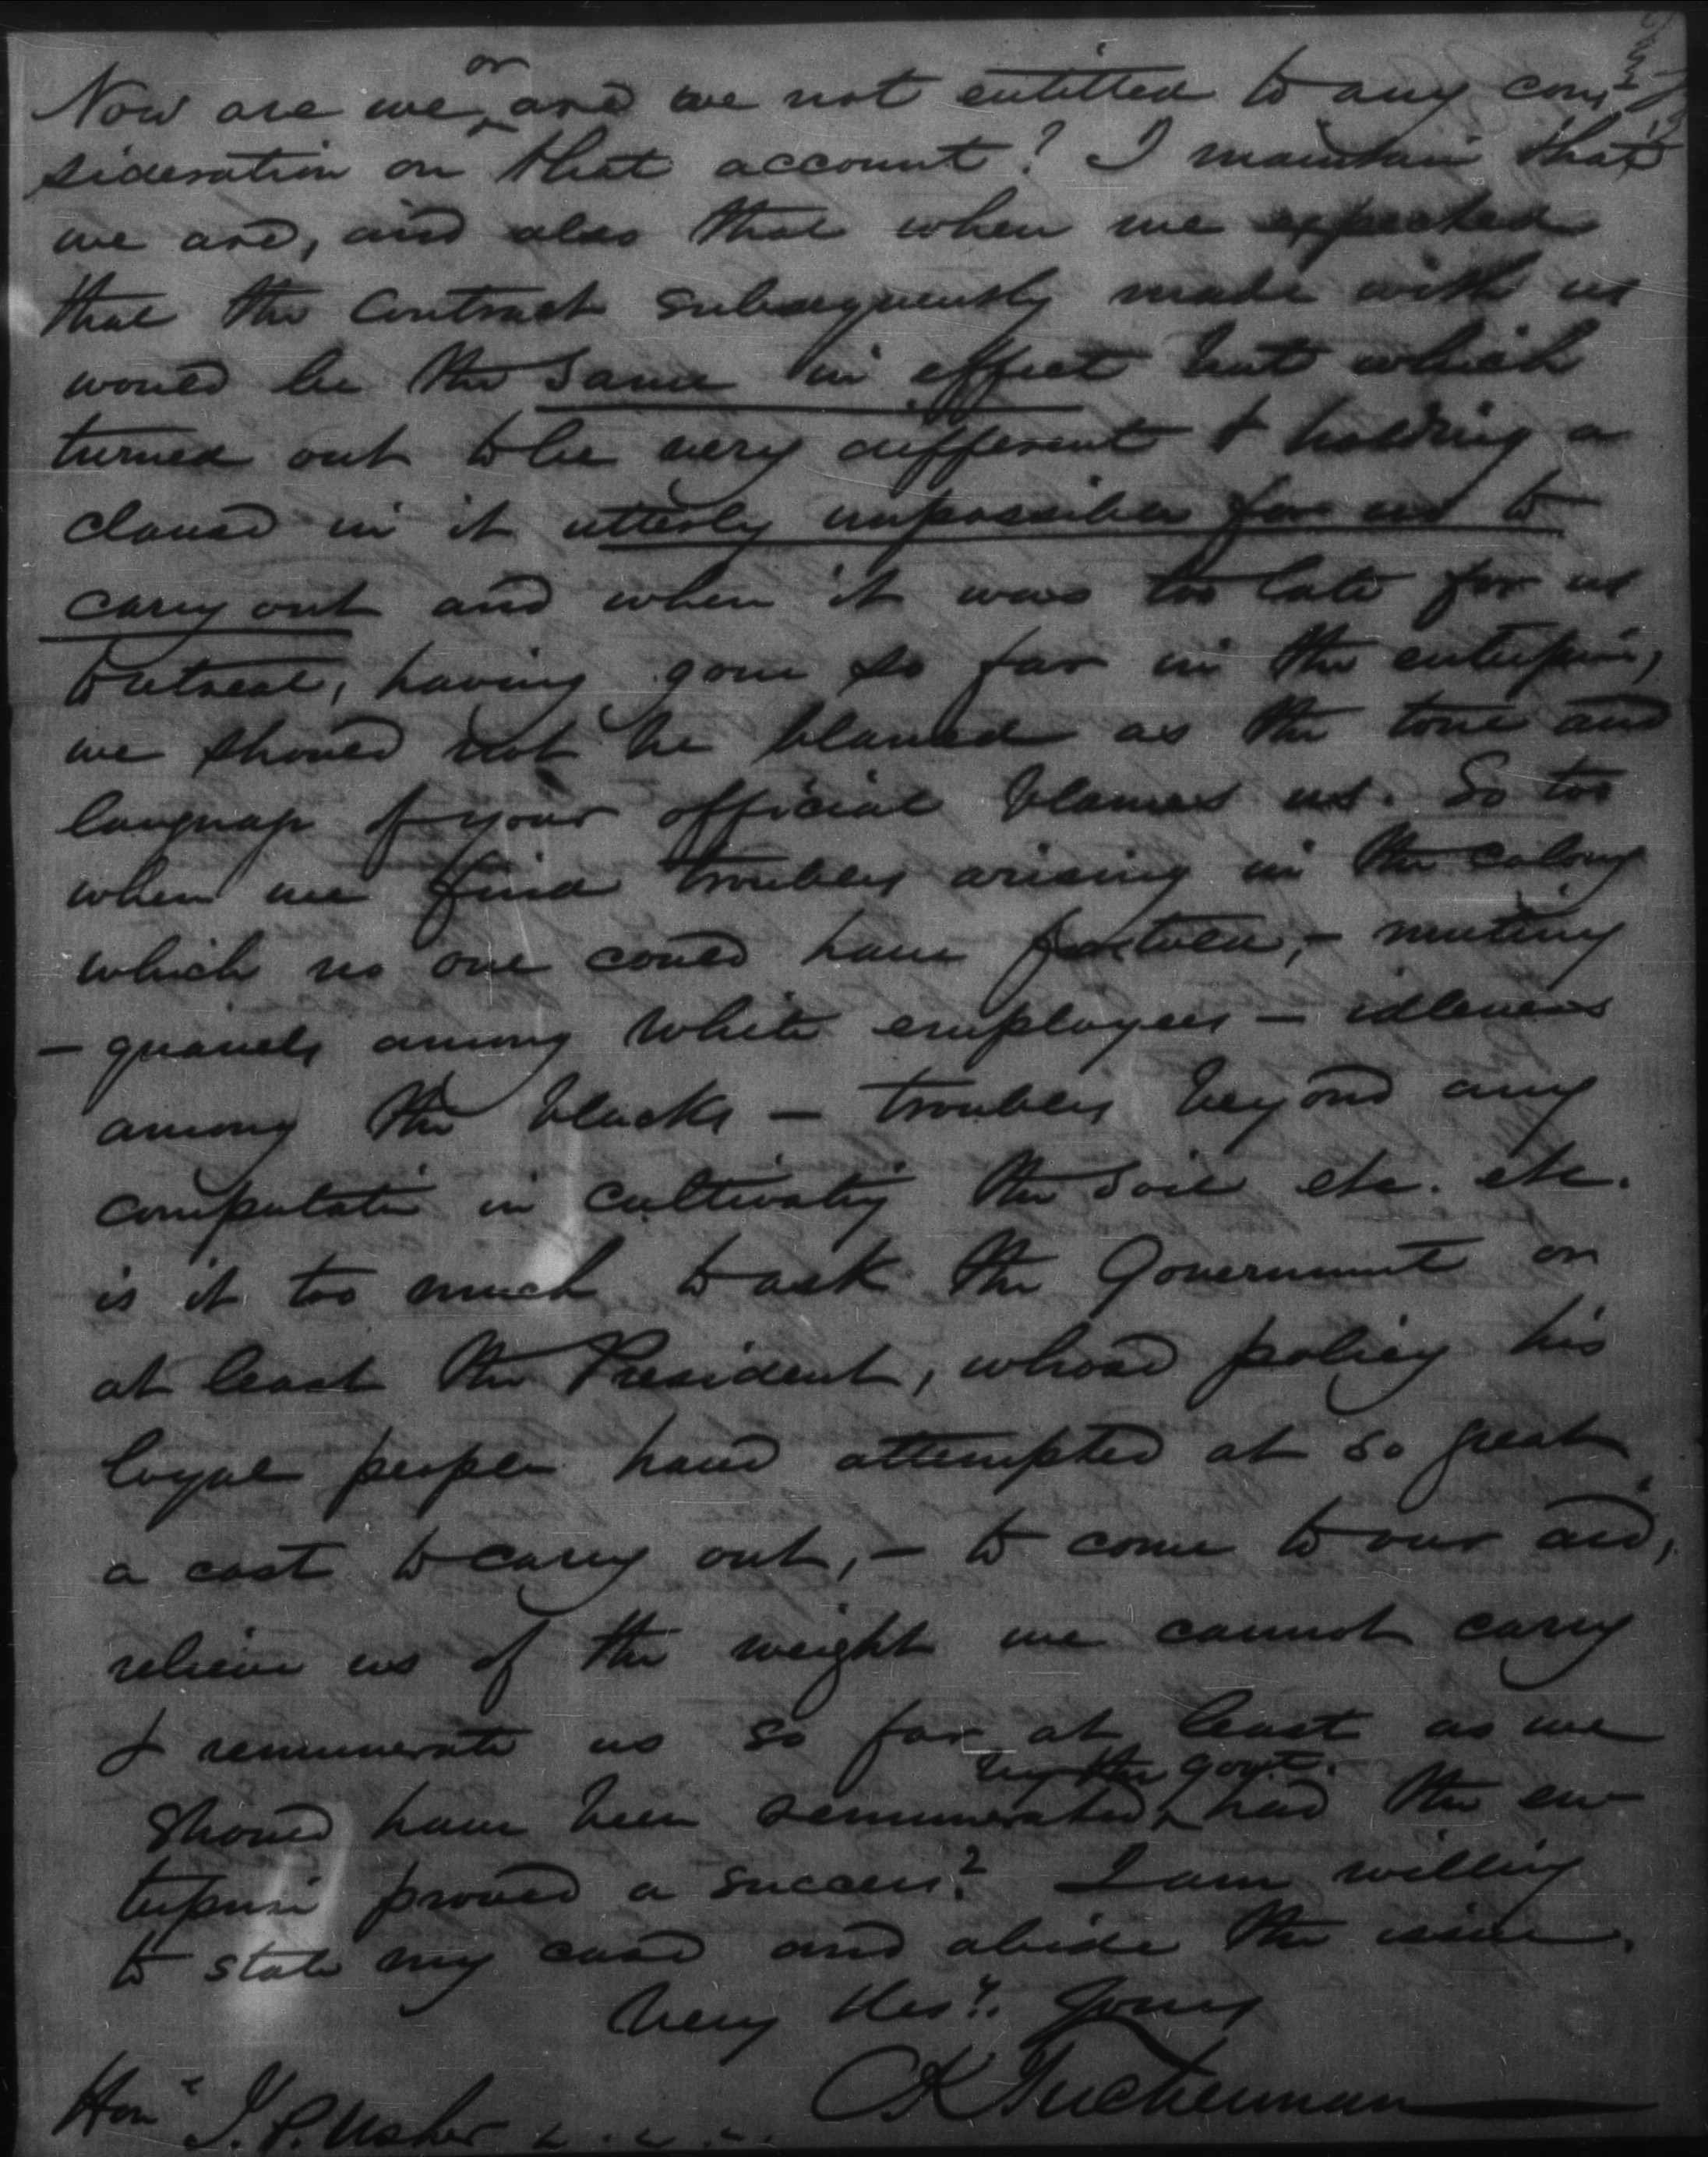 Now are we, or are we not entitled to any con-
sideration on that account? I maintain that
we are, and also that when we expected
that the contract subsequently made with us
would be the same in effect but which
turned out to be very different & holding a
clause in it utterly impossible for us to
carry out and when it was too late for us
to retreat, having gone so far in the enterprise,
we should not be blamed as the tone and
language of your official blames us. So too
when we find troubles arising in the colony
which no one could have foretold, - mutiny
- quarrels among white employees - idleness
among the blacks - troubles beyond any
computation in cultivating the soil etc. etc.
is it too much to ask the Government or
at least the President, whose policy his
loyal people have attempted at so great
a cost to carry out, - to come to our aid,
relieve us of the weight we cannot carry
& remunerate us so far at least as we
should have been remunerated by the govt. had the en-
terprise proved a success? I am willing
to state my case and abide the issue.
Very Resy. Yours
CK Tuckerman
Hone J. P. Usher